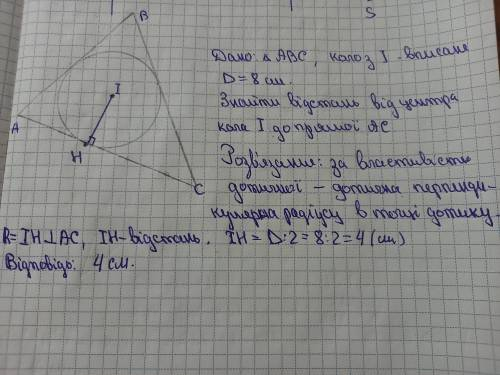 S
B
I
A
H
C
Дано: △ ABC, коло з I - вписане
D = 8 см.
Знайти відстань від центра
кола I до прямої AC
Розв'язання: за властивістю
дотичної – дотична перпенди-
кулярна радіусу в точці дотику
R = IH ⊥ AC, IH - відстань. IH = D:2 = 8:2 = 4 (см)
Відповідь: 4 см.